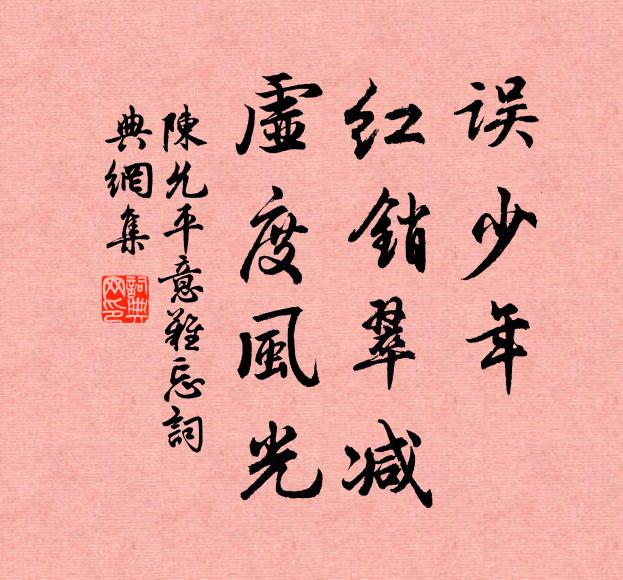 误少年
红销翠减
虚度風光
陳允平意難忘詞
典網集
詞典
网印